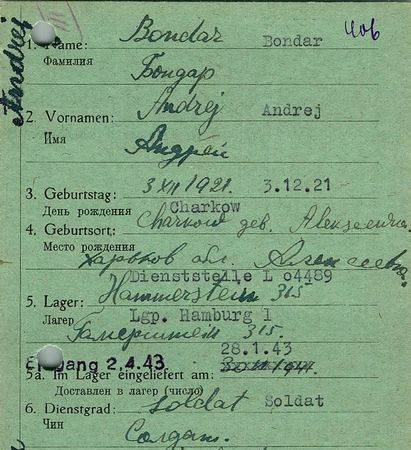 Andrej
406
Bondar
1. Name: Bondar
Фамилия
Бондар
Andrej
2. Vornamen: Andrej
Имя
Андрей
3. Geburtstag: 3 XII 1921. 3.12.21
День рождения Charkow
4. Geburtsort: Charkow дев.
Место рождения
Харьков обл.
Dienststelle L 04489
5. Lager: Hammerstein 315
Лагерь Lgp. Hamburg I
315.
Eingang 2.4.43 28.1.43
5a. Im Lager eingeliefert am:
Доставлен в лагерь (число)
6. Dienstgrad: soldat Soldat
Чин
Солдат.